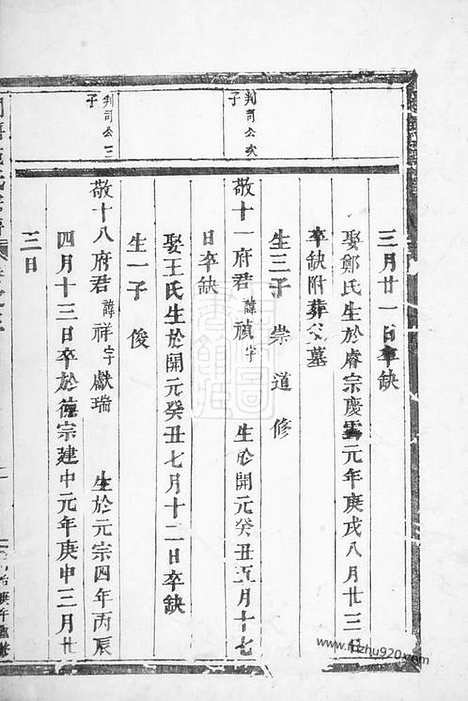 三月廿一日卒缺
娶鄭氏生於睿宗慶雲元年庚戌八月廿三日
卒缺附葬父墓
生三子 崇 道 修
判司公次子
敬十一府君 諱 禎 字 生於開元癸丑五月十七
日卒缺
娶王氏生於開元癸丑七月十二日卒缺
生一子 俊
判司公三子
敬十八府君 諱 祥 字 獻瑞 生於元宗四年丙辰
四月十三日卒於德宗建中元年庚申三月廿
三日
www.fzhu920.com